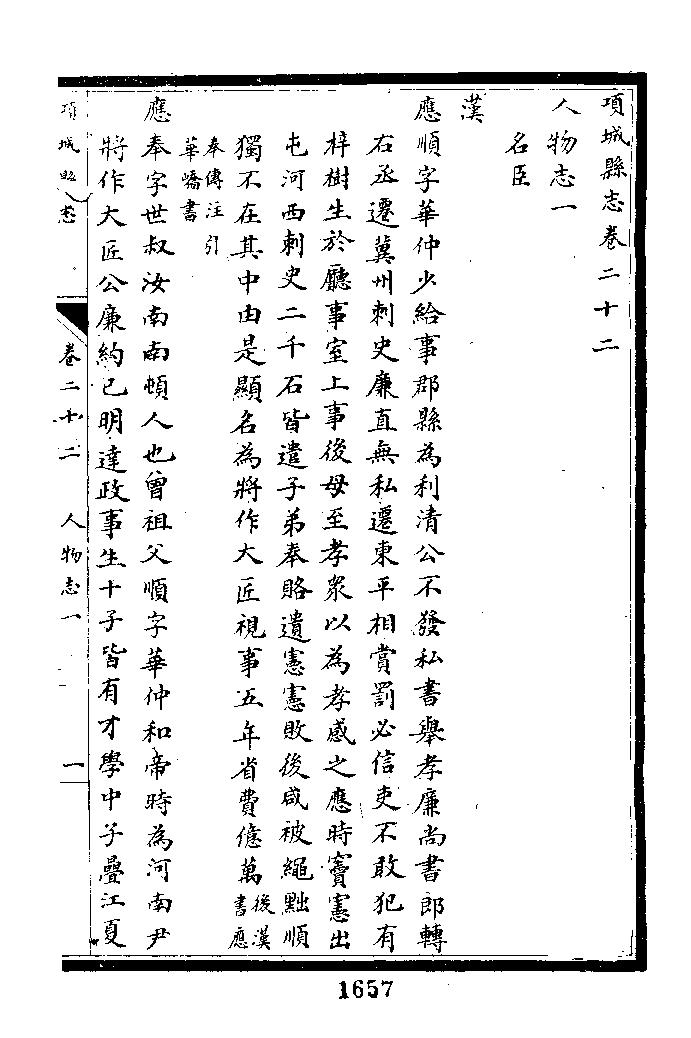 項城縣志卷二十二
人物志一
名臣
漢
應順字華仲少給事郡縣為利清公不發私書舉孝廉尚書郎轉
右丞遷冀州刺史廉直無私遷東平相賞罰必信吏不敢犯有
梓樹生於廳事室上事後母至孝衆以為孝感之應時竇憲出
屯河西刺史二千石皆遣子弟奉賂遺憲憲敗後咸被繩黜順
獨不在其中由是顯名為將作大匠視事五年省費億萬後漢
書應
奉傳注引
華嶠書
應奉字世叔汝南南頓人也曾祖父順字華仲和帝時為河南尹
將作大匠公廉約己明達政事生十子皆有才學中子疊江夏
項城縣志
卷二十二
人物志一
一
1657